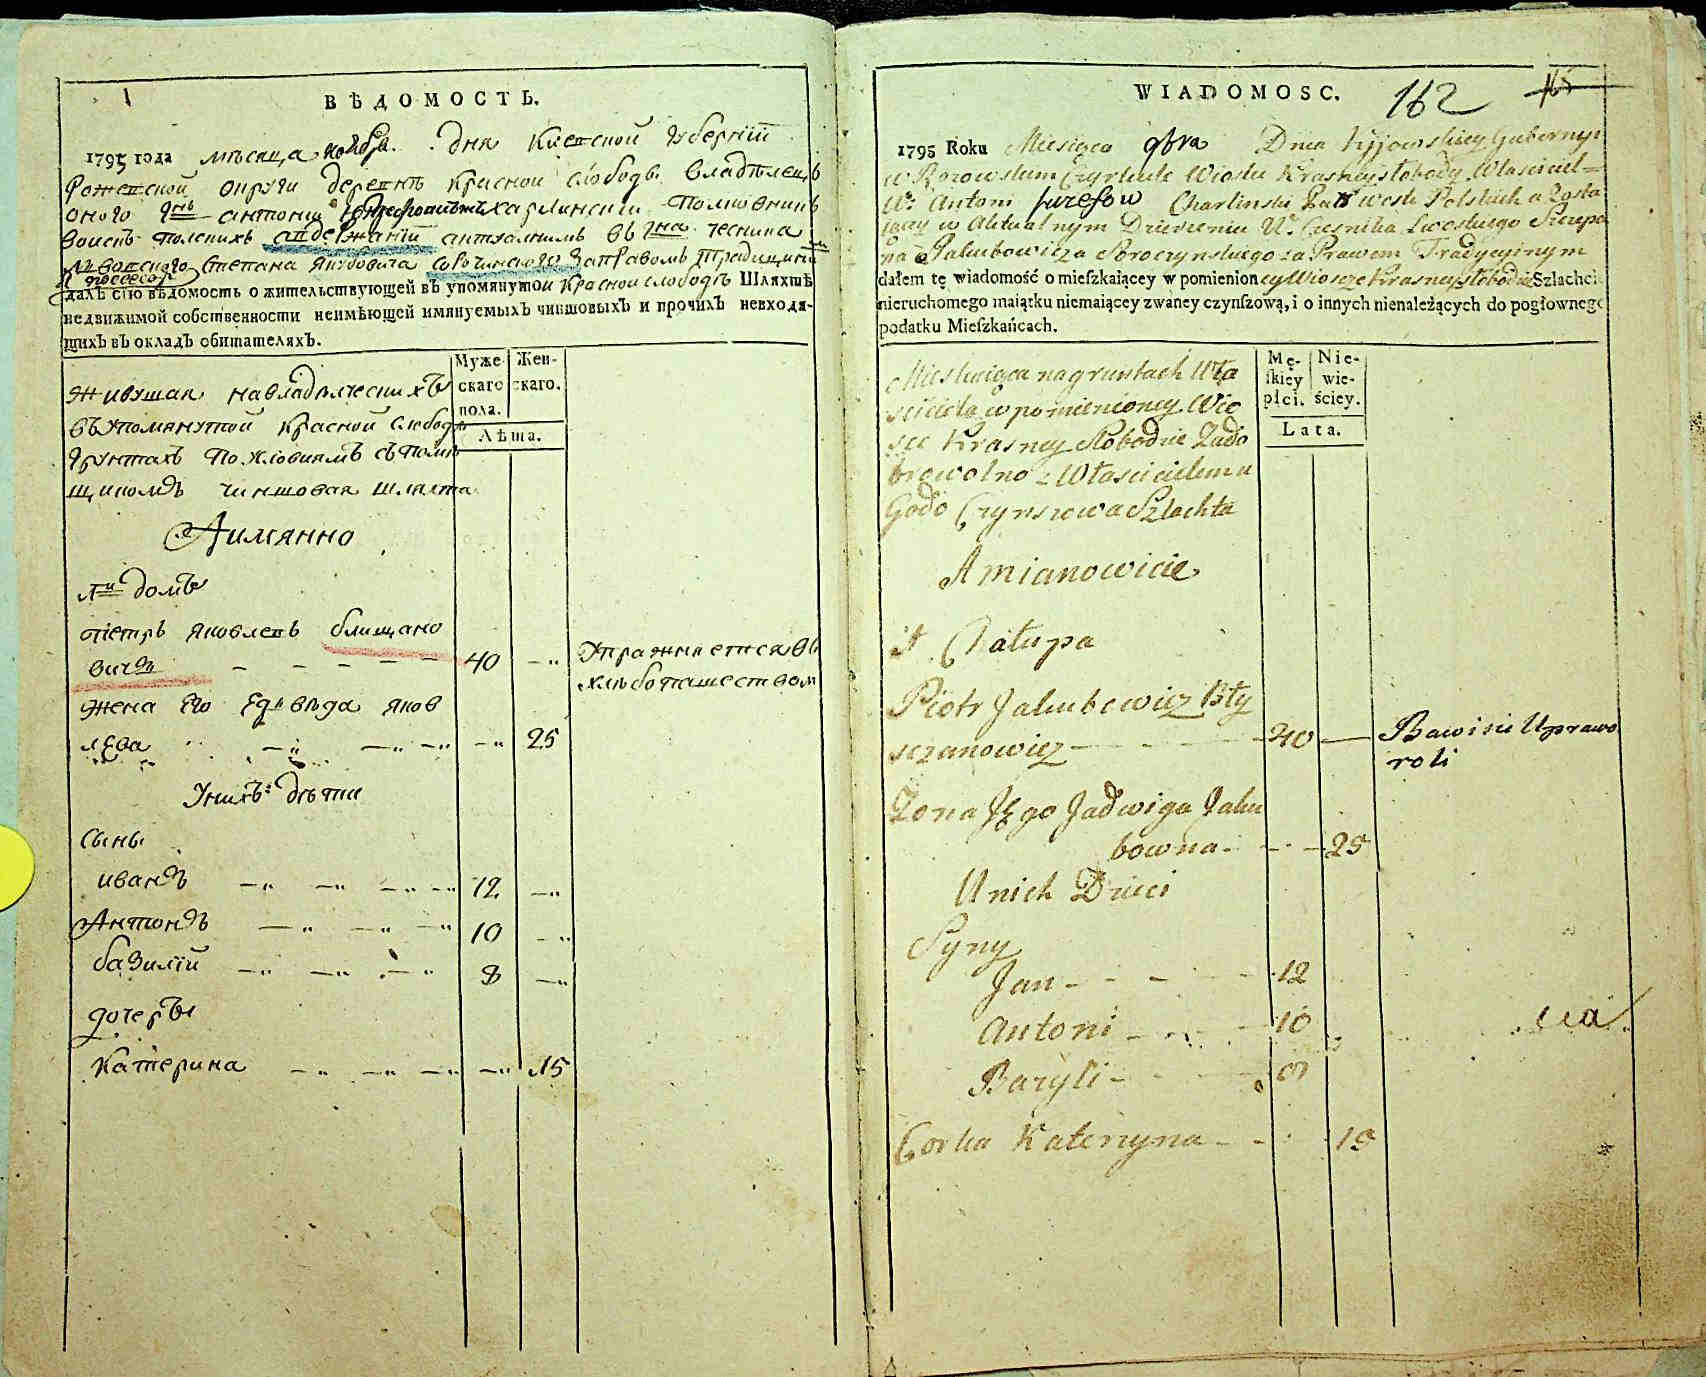 ВѢДОМОСТЬ.
1795 года мѣсяца ноября дня Киевской Губернiи
округи деревнѣ Красной Слободы владѣлецъ
оного антонiй Харлинский
воискъ полскихъ въ чесника
Степана Якубовича Сорочинского заправомъ традиции
посесор
далъ сiю вѣдомость о жительствующей въ упомянутой Красной слободѣ Шляхтѣ
недвижимой собственности неимѣющей имянуемыхъ чиншовыхъ и прочихъ невходя-
щихъ въ окладъ обитателяхъ.
Муже
скаго
пола.
Жен-
скаго.
Лѣта.
живущая на владѣлческихъ
въ упомянутой Красной Слободѣ
грунтахъ по условиямъ съ помѣ
щикомъ чиншовая шляхта
А имянно
1й домъ
петръ яковлевъ блищано
вичъ 40
Упражняется въ
хлѣбопашеством
жена его Ядвѣга яков
лева 25
У нихъ дѣти
Сыны
иванъ 12
Антонъ 10
базилiй 8
дочеръ
Катерина 15
WIADOMOSC.
162
1795 Roku Miesiąca Dnia Kijowskiey Gubernyi
Czyrkule Wiosku Krasney Słobody Właściciel
Wº Antoni Juzefow Charlinski Woysk Polskich a zosta
iący w Aktualnym Dzierzeniu Wº Czesnika Lwoskiego Szczepa
na Jakubowicza Soroczynskiego za Prawem Tradycyinym
dałem tę wiadomość o mieſzkaiącey w pomienioney Wiosce Krasney Słobodzie Szlachcie
nieruchomego maiątku niemaiącey zwaney czynſzową, i o innych nienależących do pogłownego
podatku Mieſzkańcach.
Mę-
ſkiey
płci.
Nie-
wie-
ściey.
Lata.
Mieszkaiąca na gruntach Wła
sciciela w pomienioney Wio
sce Krasney Słobodzie Zado
browolno z Włascicielem u
Godo Czynszowa Szlachta
A mianowicie
1 Chałupa
Piotr Jakubowicz Bły
szczanowicz 40
Bawi sie Uprawo
roli
Zona Jego Jadwiga Jaku
bowna 25
U nich Dzieci
Syny
Jan 12
Antoni 10
Bazyli 8
Corka Kateryna 15